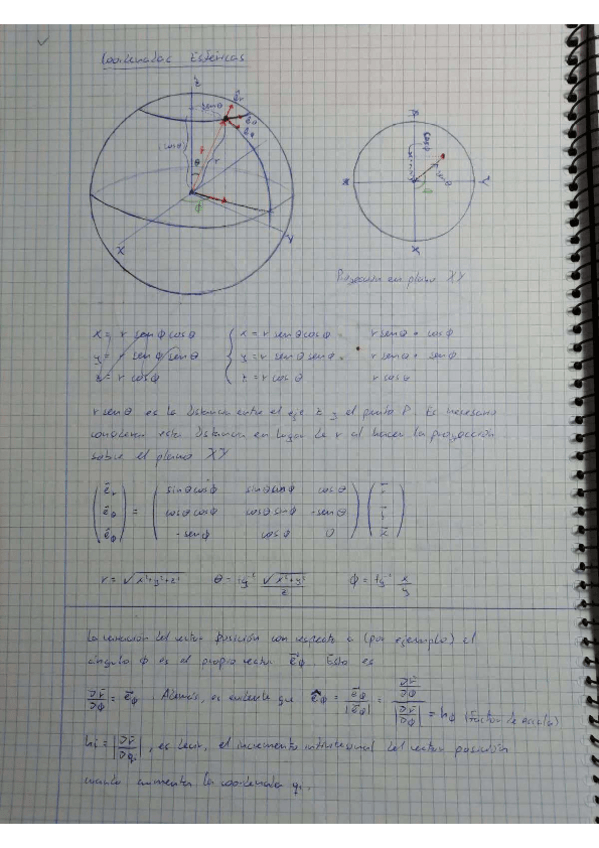 Coordenadas Esféricas
Z
r senθ
r cosθ
θ
r
φ
X
Y
X
Y
Proyección en plano XY
x = r senφ cosθ { x = r senθ cosφ = r senθ · cosφ
y = r senφ senθ y = r senθ senφ = r senθ · senφ
z = r cosφ z = r cosθ r cosθ
r senθ es la distancia entre el eje z y el punto P. Es necesario
conocer esta distancia en lugar de r al hacer la proyección
sobre el plano XY
e_r = sinθcosφ sinθsinφ cosθ i
e_θ cosθcosφ cosθsinφ -senθ j
e_φ -senφ cosφ 0 k
r = √x²+y²+z² θ = tg⁻¹ √x²+y² / z φ = tg⁻¹ x/y
La variación del vector posición con respecto a (por ejemplo) el
ángulo φ es el propio vector e_φ. Esto es
∂r/∂φ = e_φ Además, es evidente que ê_φ = e_φ/|e_φ| = ∂r/∂φ / |∂r/∂φ| = h_φ (Factor de escala)
hi = |∂r/∂qi|, es decir, el incremento del vector posición
cuando aumenta la coordenada qi.